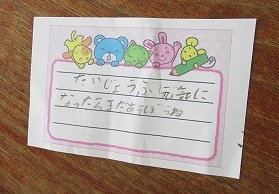 だいじょうぶ元気に
なったらまたあそぼうね